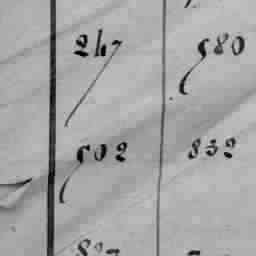 247 580
502 832